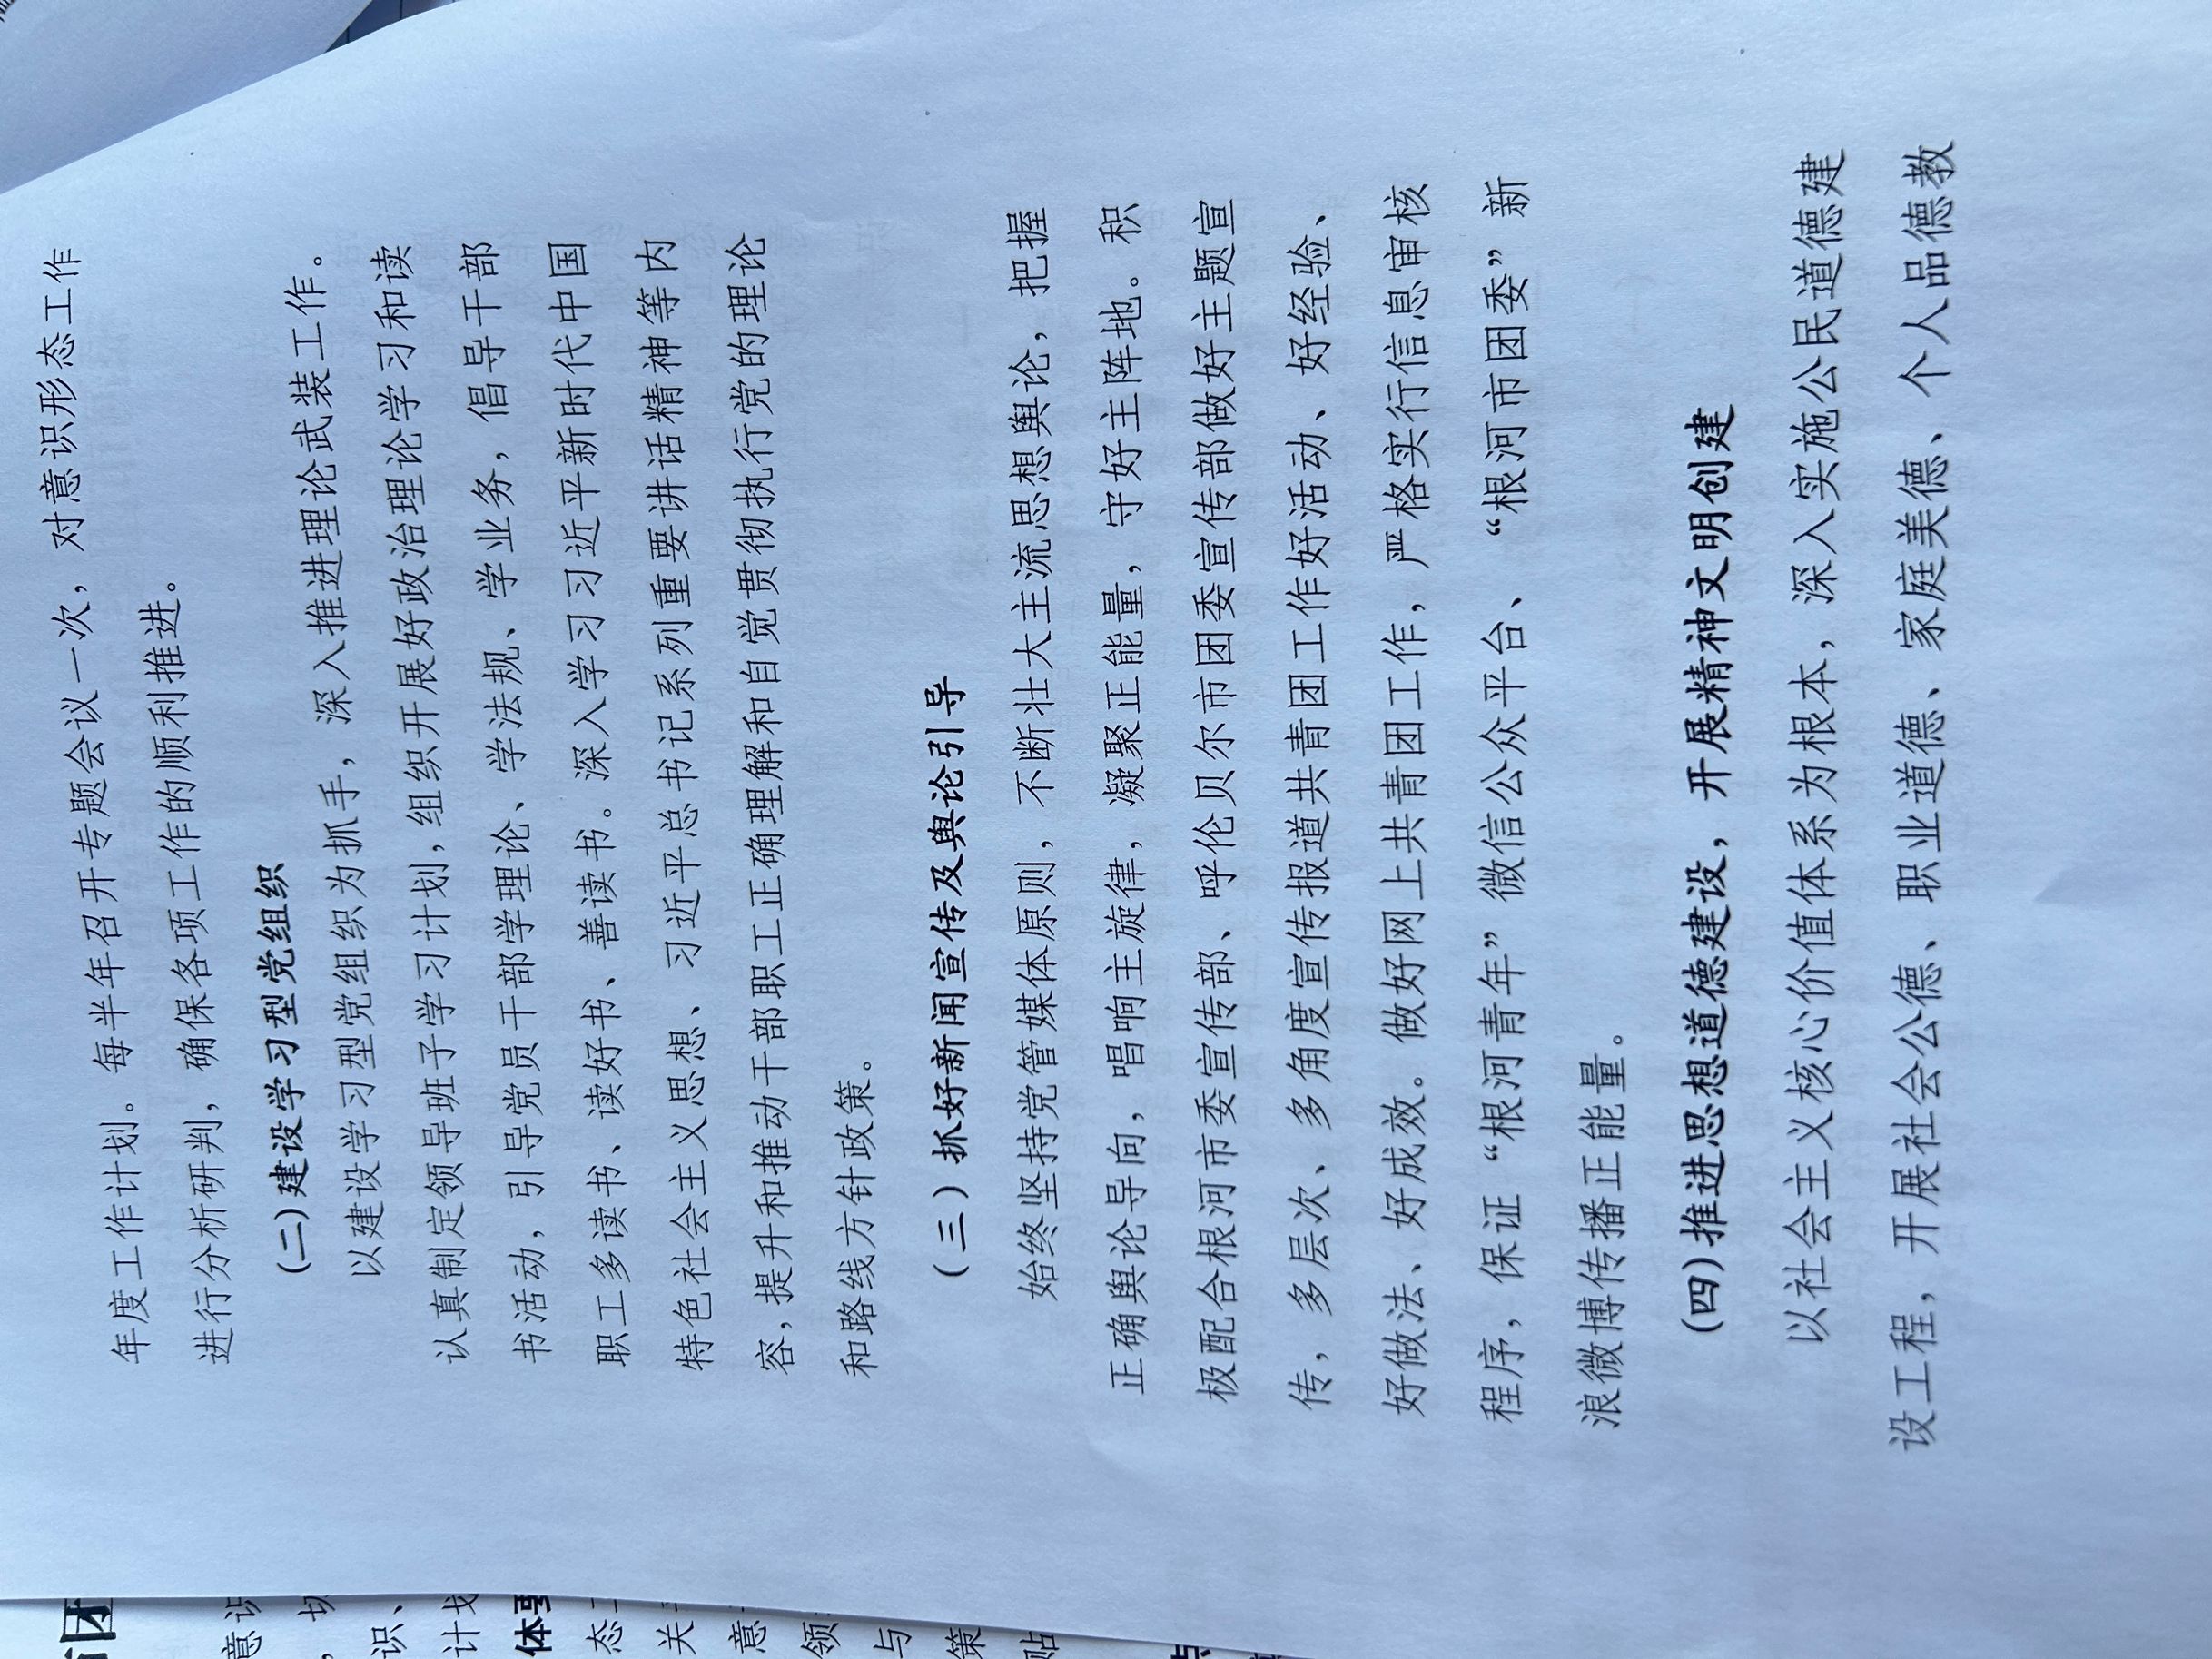 年度工作计划。每半年召开专题会议一次，对意识形态工作
进行分析研判，确保各项工作的顺利推进。
(二)建设学习型党组织
以建设学习型党组织为抓手，深入推进理论武装工作。
认真制定领导班子学习计划,组织开展好政治理论学习和读
书活动，引导党员干部学理论、学法规、学业务，倡导干部
职工多读书、读好书、善读书。深入学习习近平新时代中国
特色社会主义思想、习近平总书记系列重要讲话精神等内
容,提升和推动干部职工正确理解和自觉贯彻执行党的理论
和路线方针政策。
(三)抓好新闻宣传及舆论引导
始终坚持党管媒体原则，不断壮大主流思想舆论，把握
正确舆论导向，唱响主旋律，凝聚正能量，守好主阵地。积
极配合根河市委宣传部、呼伦贝尔市团委宣传部做好主题宣
传，多层次、多角度宣传报道共青团工作好活动、好经验、
好做法、好成效。做好网上共青团工作，严格实行信息审核
程序，保证“根河青年”微信公众平台、“根河市团委”新
浪微博传播正能量。
(四)推进思想道德建设，开展精神文明创建
以社会主义核心价值体系为根本，深入实施公民道德建
设工程，开展社会公德、职业道德、家庭美德、个人品德教
团
意识
识、
计划
体要
态
关
意
领
与
策